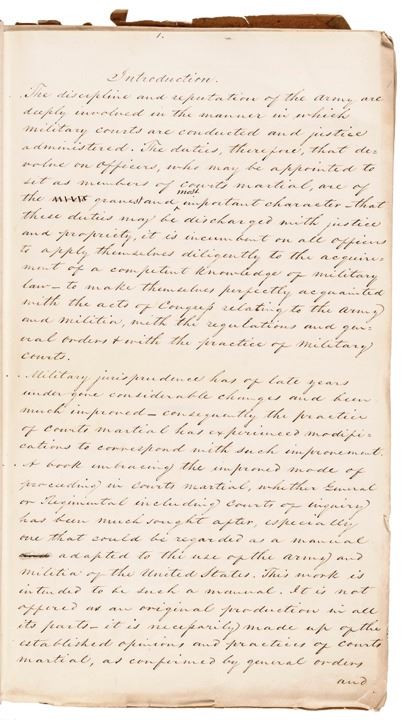 1.
Introduction.
The discipline and reputation of the Army are
deeply involved in the manner in which
military courts are conducted and justice
administered. The duties, therefore, that de-
volve on Officers, who may be appointed to
set as members of Courts martial, are of
most
the grave and important character – that
these duties may be discharged with justice
and propriety, it is incumbent on all officers
to apply themselves diligently to the acquire-
ment of a competent knowledge of military
law – to make themselves perfectly acquainted
with the acts of Congress relating to the Army
and militia, with the regulations and gen-
eral orders & with the practice of military
courts.
Military jurisprudence has of late years
undergone considerable changes and been
much improved – consequently the practice
of Courts martial has experienced modifi-
cations to correspond with such improvement.
A book embracing the improved mode of
proceeding in Courts martial, whether General
or Regimental including Courts of inquiry
has been much sought after, especially
one that could be regarded as a manual
adapted to the use of the army and
militia of the United States. This work is
intended to be such a manual. It is not
offered as an original production in all
its parts – it is necessarily made up of the
established opinions and practices of Courts
martial, as confirmed by general orders
and